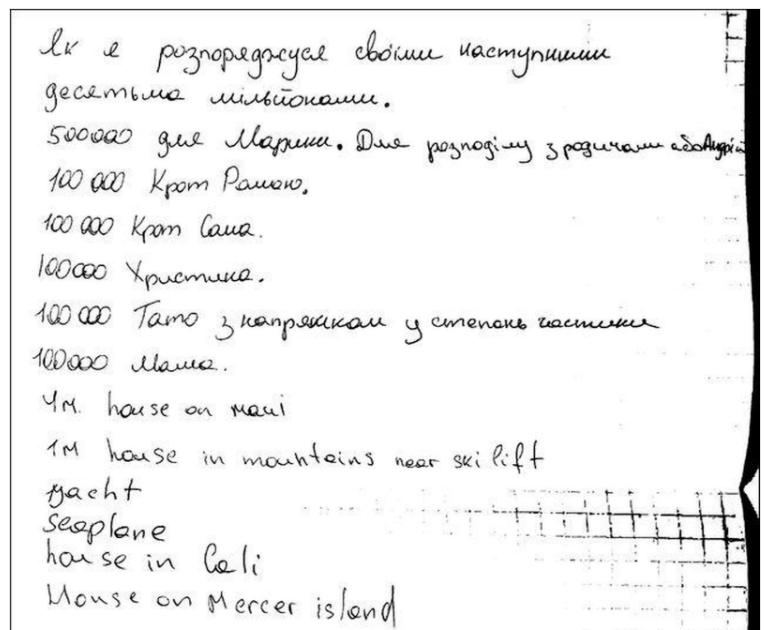 Як я розпоряджуся своїми наступними
десятьма мільйонами.
500000 для Марини. Для розподілу з родичами або Андрій
100 000 Крот Рамоню.
100 000 Крот Саша.
100000 Христина.
100 000 Тато з напрямком у степень частини
100000 Мама.
4м. house on maui
1м house in mountains near ski lift
yacht
seaplane
house in Cali
House on Mercer island